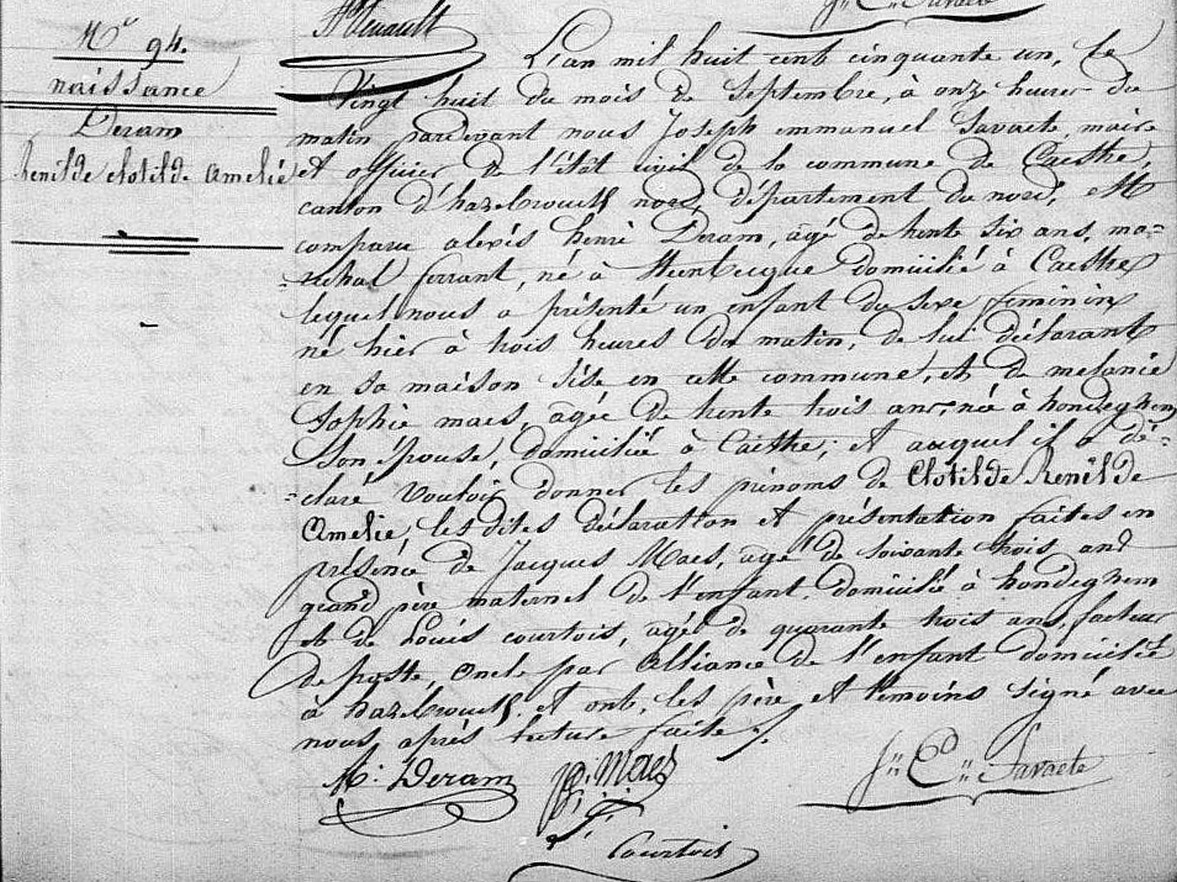 Nº 94.
naissance
Deram
Renilde clotilde amelie
L'an mil huit cent cinquante un, le
Vingt huit du mois de Septembre, à onze heures du
matin pardevant nous Joseph emmanuel Savaete, maire
et officier de l'état civil de la commune de Caestre,
canton d'hazebrouck nord, département du nord, est
comparu alexis henri Deram, âgé de trente six ans, ma=
=rechal ferrant, né à domicilié à Caestre
lequel nous a présenté un enfant du sexe feminin
né hier à trois heures du matin, de lui déclarant
en sa maison sise en cette commune, et de melanie
Sophie maes, agée de trente trois ans, née à hondeghem
Son Epouse, domiciliée à Caestre; et auquel il a dé=
=claré vouloir donner les prénoms de Clotilde Renilde
Amelie, les dites déclaration et présentation faites en
présence de Jacques Maes, agé de soixante trois ans
grand père maternel de l'enfant, domicilié à hondeghem
et de Louis courtois, agé de quarante trois ans, facteur
de poste, oncle par alliance de l'enfant domicilié
à hazebrouck, et ont, les père et témoins signé avec
nous après lecture faite ./.
h: Deram j: Maes Jh En Savaete
L: Courtois